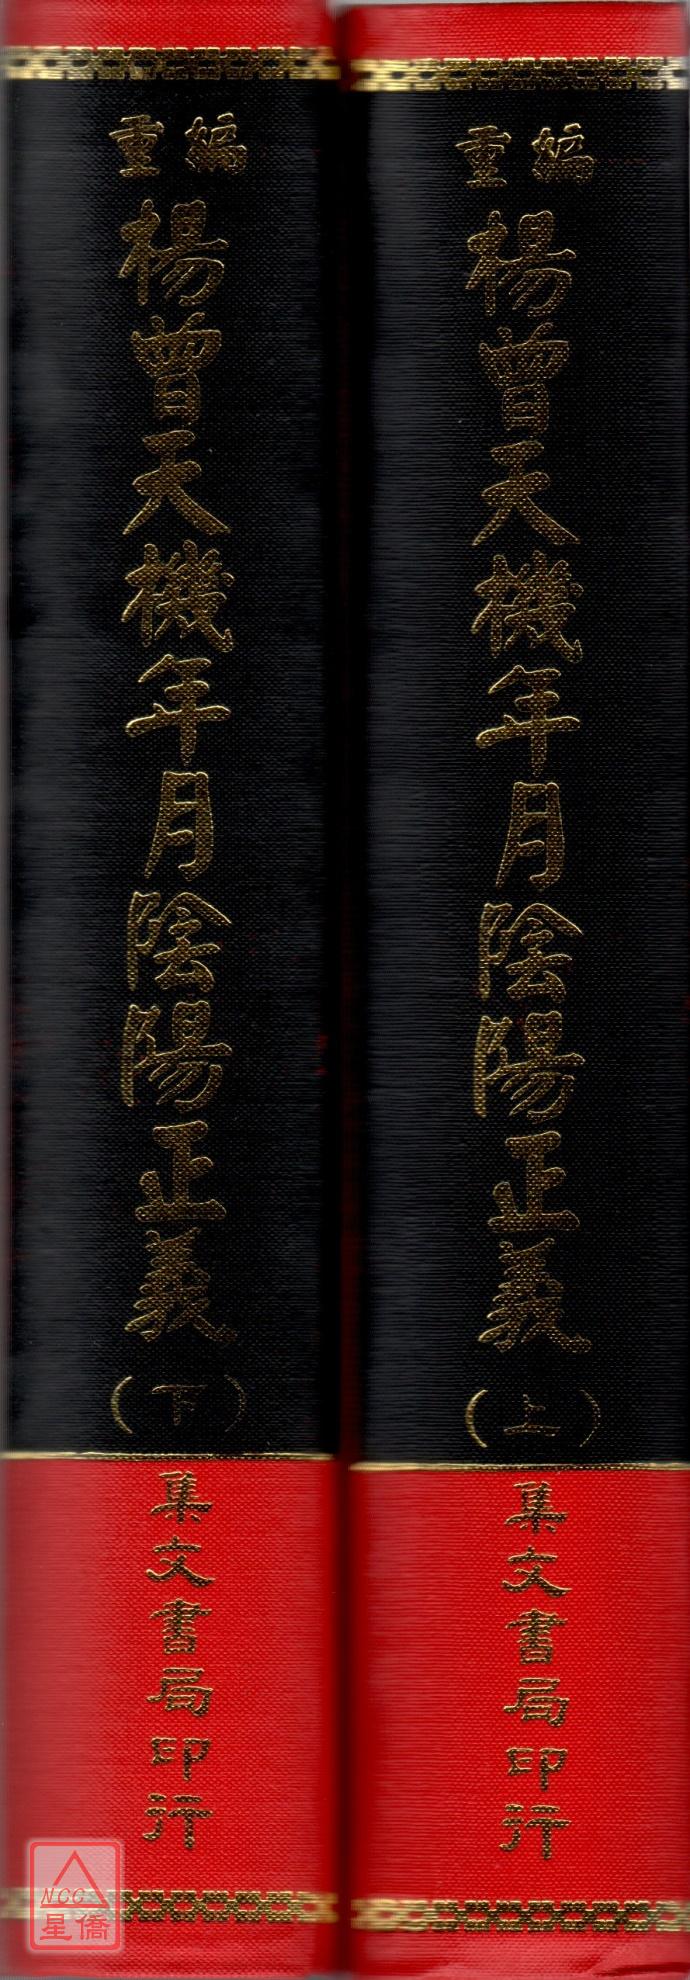 重編
楊曾天機年月陰陽正義
(上)
集文書局印行
重編
楊曾天機年月陰陽正義
(下)
集文書局印行
NCC
星僑